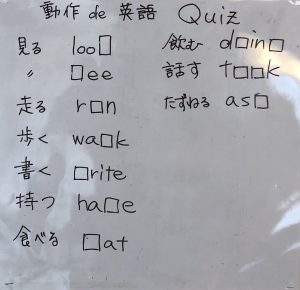 動作 de 英語 Quiz
見る loo□
〃 □ee
走る r□n
歩く wa□k
書く □rite
持つ ha□e
食べる □at
飲む d□in□
話す t□□k
たずねる as□